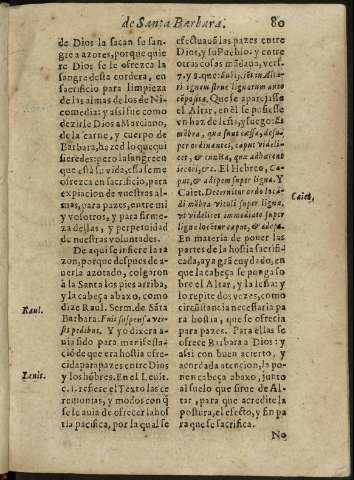 de Santa Barbara. 80
de Dios la sacan su san-
gre a azotes, porque quie
re Dios se le ofrezca la
sangre desta cordera, en
sacrificio para limpieza
de las almas de los de Ni-
comedia: y assi fue como
dezirle Dios a Marciano,
de la carne, y cuerpo de
Barbara, hazed lo que qui
sieredes: pero la sangre en
que està su vida, essa se me
ofrezca en sacrificio, para
expiacion de vuestras al-
mas, para pazes, entre mi
y vosotros, y para firme-
za dellas, y perpetuidad
de nuestras voluntades.
De aqui se infiere la ra
zon, porque despues de a-
uerla azotado, colgaron
à la Santa los pies arriba,
y la cabeça abaxo, como
dize Raul. Serm. de Sãta
Barbara: Fuit suspensa ver-
sis pedibus. Y yo dixera a-
uia sido para manifesta-
ció de que era hostia ofre-
cida para pazes entre Dios
y los hõbres. En el Leuit.
c. 1. refiere el Texto las ce
remonias, y modos con q̃
se le auia de ofrecer la hos
tia pacifica, por la qual se
Raul.
Leuit.
efectuauã las pazes entre
Dios, y su Pueblo: y entre
otras cosas mãdaua, vers.
7. y 8. que:
Que se aparejasse
el Altar, en el se pusiesse
vn haz de leña, y luego:
mẽbra, quæ sunt cæssa, desu-
per ordinantes, caput videli-
cet, & cuncta, quæ adhærent
iecori, &c. El Hebreo, Ca-
put, & adipem super ligna. Y
Caiet. Determinatur ordo locã-
di mẽbra vituli super ligna,
vt videlicet immediatè super
ligna locẽtur caput, & adeps.
En materia de poner las
partes de la hostia sacrifi-
cada, aya grã cuydado, en
que la cabeça se ponga so-
bre el Altar, y la leña: y
lo repite dos vezes, como
circũstancia necessaria pa
ra hostia, que se ofrecia
para pazes. Para ellas se
ofrece Barbara a Dios: y
assi con buen acierto, y
acordada atencion, la po-
nen cabeça abaxo, junto
al suelo que sirve de Al-
tar, para que acredite la
postura, el efecto, y fin pa
ra que se sacrifica.
Caiet,
No